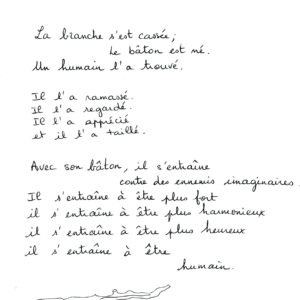 La branche s'est cassée,
le bâton est né.
Un humain l'a trouvé.
Il l'a ramassé.
Il l'a regardé.
Il l'a apprécié
et il l'a taillé.
Avec son bâton, il s'entraîne
contre des ennemis imaginaires.
Il s'entraîne à être plus fort
il s'entraîne à être plus harmonieux
il s'entraîne à être plus heureux
il s'entraîne à être
humain.